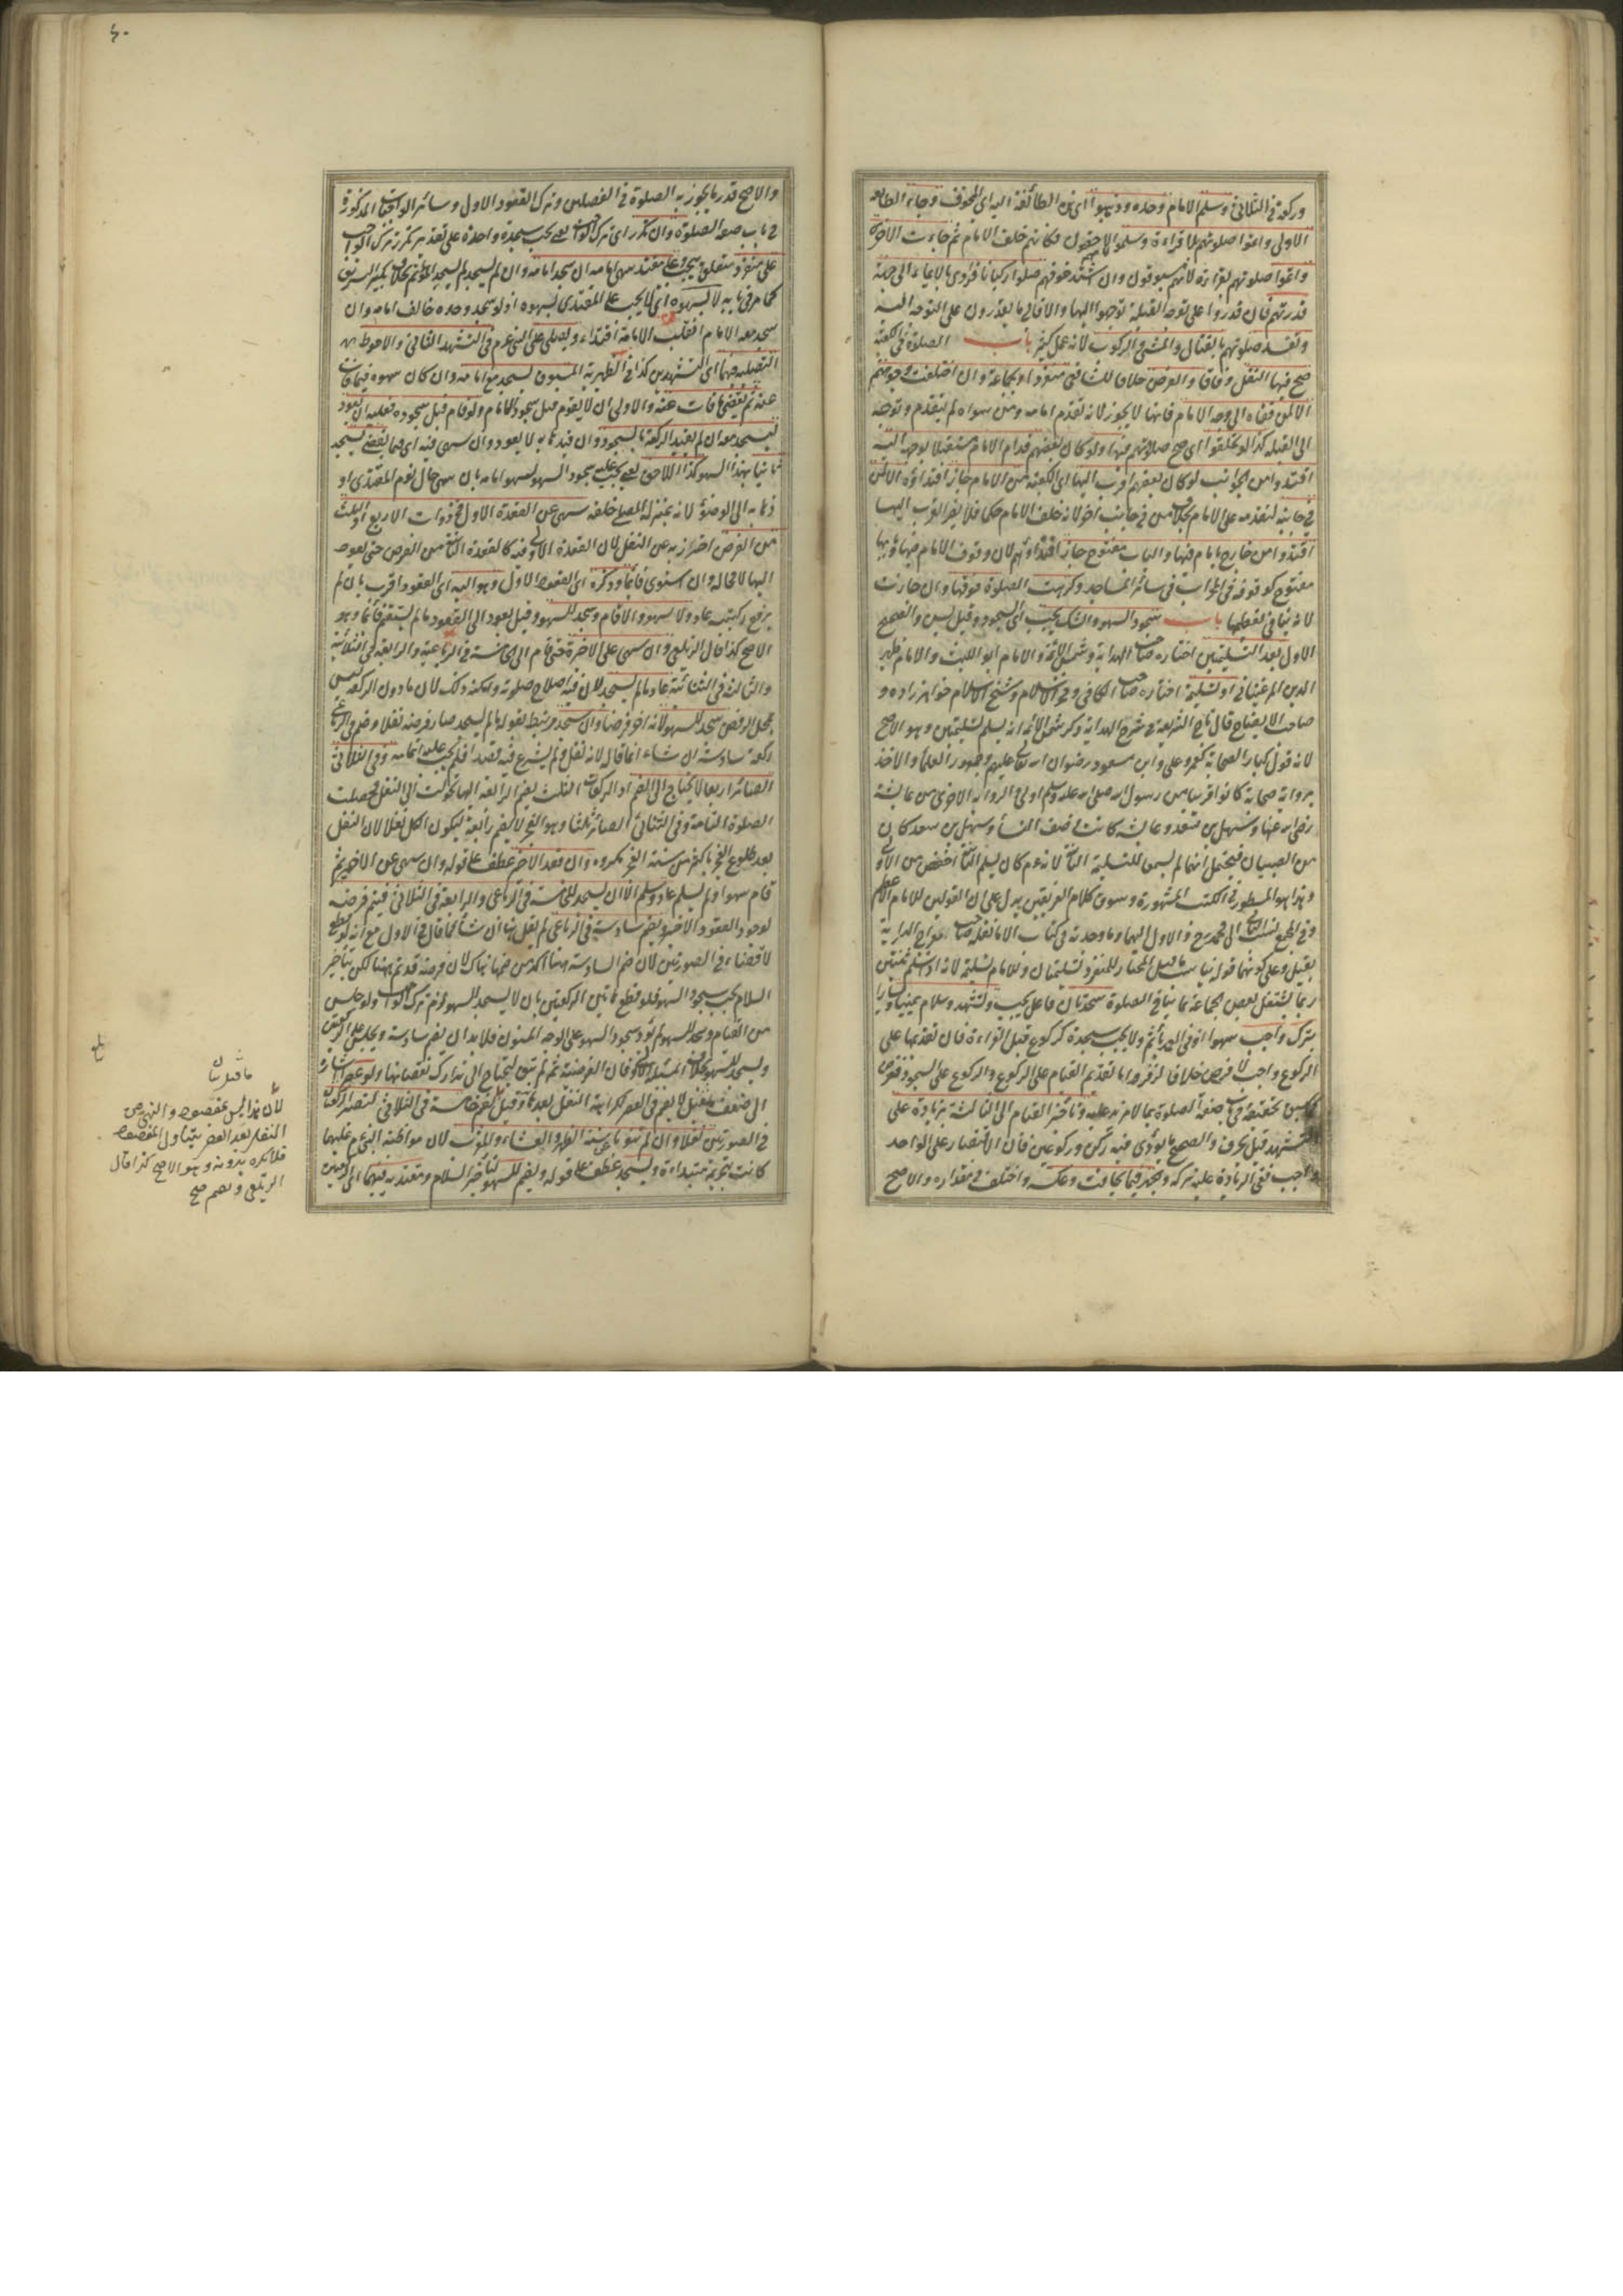 وركعة في الثلاثي وسلم الامام وحده وذهبوا اى هذه الطائفة اليه اى المخوف وجاء الطائفة
الاولى واتموا صلوتهم بلا قراءة وسلموا لانهم خلف الامام ثم جاءت الاخرى
واتموا صلوتهم بقراءة لانهم مسبوقون وان اشتد خوفهم صلوا ركبانا فرادى بالايماء الى جهة
قدرتهم فان قدروا على توجه القبلة توجهوا اليها والا فالى ما يقدرون على التوجه اليه
وتفسد صلوتهم بالقتال والمشي والركوب لانه عمل كثير باب الصلوة في الكعبة
صح فيها النفل وفاقا والفرض خلافا للشافعي منفردا وبجماعة وان اختلفت وجوههم
الا لمن قفاه الى وجه الامام فانها لا يجوز لانه تقدم امامه ومن سواه لم يتقدم وتوجه
الى القبلة كذا لو تحلقوا اى صح صلاتهم فيها ولو كان بعضهم قدام الامام مستقبلا لوجهه اليه
اقتدوا من الجوانب لو كان بعضهم اقرب اليها اى الكعبة من الامام جاز اقتداؤه الا لمن
في جانبه لتقدمه على الامام بخلاف من في جانب اخر لانه خلف الامام حكما فلا يضر القرب اليها
اقتدوا من خارج بامام فيها والباب مفتوح جاز اقتداؤهم لان وقوف الامام فيها وبابها
مفتوح كوقوفه في المحراب في سائر المساجد وكرهت الصلوة فوقها وان جازت
لانه ينافي تعظيمها باب سجود السهو والشك يجب اى السجود وقيل يسن والصحيح
الاول بعد التسليمتين اختاره صاحب الهداية وشمس الائمة والامام ابو الليث والامام ظهير
الدين المرغيناني او تسليمة اختاره صاحب الكافي وفخر الاسلام وشيخ الاسلام خواهر زاده و
صاحب الايضاح قال تاج الشريعة في شرح الهداية ذكر شمس الائمة انه يسلم تسليمتين وهو الاصح
لانه قول كبار الصحابة كعمر وعلي وابن مسعود رضوان الله تعالى عليهم وجمهور العلماء والاخذ
برواية صحابة كانوا قريبا من رسول الله صلى الله عليه وسلم اولى والرواية الاخرى من عائشة
رضي الله عنها وسهل بن سعد وعائشة كانت في صف النساء وسهل بن سعد كان
من الصبيان فيحتمل انهما لم يسمعا للتسليمة الثانية لانه عم كان يسلم الثانية اخفض من الاولى
وهذا هو المسطور في الكتب المشهورة وسوق كلام الفريقين يدل على ان القولين للامام الاعظم
وفي المجمع نسب الثاني الى محمد رح والاول اليهما وما وجدته في كتاب الا ما نقله صاحب معراج الدراية
ربما يشتغل بعض الجماعة بما ينافي الصلوة سجدتان فاعل يجب وتشهد وسلام يمينا ويسارا
بترك واجب سهوا اذ في العمد يأثم ولا يجب سجدة كركوع قبل القراءة فان تقديمها على
الركوع واجب لا فرض خلافا لزفر واما تقديم القيام على الركوع والركوع على السجود ففرض
كما سبق تحقيقه في باب صفة الصلوة بما لا مزيد عليه وتاخير القيام الى الثالثة بزيادة على
التشهد قيل بحرف والصحيح ما يؤدى فيه ركن وركوعين فان الاقتصار على الواحد
واجب ففي الزيادة عليه تركه وجهر فيما يخافت وعكسه واختلف في مقداره والاصح
٤٠
والاصح قدر ما يجوز به الصلوة في الفصلين وترك القعود الاول وسائر الواجبات المذكورة
في باب صفة الصلوة وان تكرر اى ترك الواجب يعنى يجب سجدة واحدة على تقدير تكرر ترك الواجب
على منفرد متعلق بيجب وعلى مقتد بسهو امامه ان سجد امامه وان لم يسجد لم يسجد المؤتم بخلاف تكبير التشريق
كما مر في بابه لا بسهوه اى لا يجب على المقتدى بسهوه اذ لو سجد وحده خالف امامه وان
سجد معه الامام انقلب الامامة اقتداء ويصلى على النبي عم في التشهد الثاني والاحوط
التصلية فيهما اى التشهدين كذا في الظهيرية المسبوق يسجد مع امامه وان كان سهوه فيما فات
عنه ثم يقضي ما فات عنه والاولى ان لا يقوم قبل سجود الامام ولو قام قبل سجوده فعليه ان يعود
ليسجد معه ان لم يقيد الركعة بالسجود وان قيدها به لا يعود وان سهى فيه اى فيما يقضي يسجد
ثانيا بهذا السهو كذا اللاحق يعنى يجب عليه سجود السهو بسهو امامه بان سهى حال نوم المقتدى او
ذهابه الى الوضوء لانه بمنزلة المصلي خلفه سهى عن القعدة الاولى في ذوات الاربع او الثلث
من الفرض احتراز به عن النفل لان القعدة الاولى فيه كالقعدة الثانية من الفرض حتى يعود
اليها لا محالة وان استوى قائما وذكره اى القعود الاول وهو اليه اى القعود اقرب بان لم
يرفع ركبتيه عاد ولا سهو والا قام وسجد للسهو وقيل يعود الى القعود ما لم يستقم قائما وهو
الاصح كذا قال الزيلعي وان سهى عن الاخيرة حتى قام الى الخامسة في الرباعية والرابعة في الثلاثية
والثالثة في الثنائية عاد ما لم يسجد لان فيه اصلاح صلوته وامكنه ذلك لان ما دون الركعة ليس
بمحل الرفض سجد للسهو لانه اخر فرضا وان سجد مرتبط بقوله ما لم يسجد صار فرضه نفلا وضم في الرباعي
ركعة سادسة ان شاء انما قال لانه نفل ولم يشرع فيه قصدا فلم يجب عليه اتمامه وفي الثلاثي
الصائر اربعا لا يحتاج الى الضم اذ الركعات الثلث بضم الرابعة اليها تحولت الى النفل فحصلت
الصلوة التامة وفي الثنائي الصائر ثلثا وهو الفجر لا يضم رابعة ليكون الكل نفلا لان النفل
بعد طلوع الفجر باكثر من سنة الفجر مكروه وان قعد الاخير عطف على قوله وان سهى عن الاخير ثم
قام سهوا ولم يسلم عاد وسلم الا ان يسجد للخامسة في الرباعي والرابعة في الثلاثي فيتم فرضه
لوجود القعود الاخير ويضم سادسة في الرباعي لم يقل هنا ان شاء كما قال في الاول مع انه لو قطع
لا قضاء في الصورتين لان ضم السادسة هنا اكد من ضمها هناك لان فرضه قد تم هنا لكن بتأخير
السلام يجب سجود السهو فلو قطع هاتين الركعتين بان لا يسجد للسهو لزم ترك الواجب ولو جلس
من القيام وسجد للسهو لم يؤد سجود السهو على الوجه المسنون فلا بد ان يضم سادسة ويجلس على الركعتين
ويسجد للسهو بخلاف المسئلة الاولى فان الفرضية ثمه لم تبق ليحتاج الى تدارك نقصانها ولو عصرا اشارة
الى ضعف ما قيل لا يضم في العصر لكراهة النفل بعده وقيل يضم خامسة في الثلاثي لتصير الركعتان
في الصورتين نفلا وان لم تنوبا عن سنة الظهر والعشاء والمغرب لان مواظبة النبي عم عليهما
كانت بتحريمة مبتدأة ويسجد عطف على قوله ويضم للسهو لتأخير السلام ومقتد به فيهما اى الركعتين
ما قيل بيان
لأن هذا ليس بمقصود والنهي عن
التنفل بعد العصر يتناول المقصود
فلا يكره بدونه وهو الاصح كذا قال
الزيلعي صح